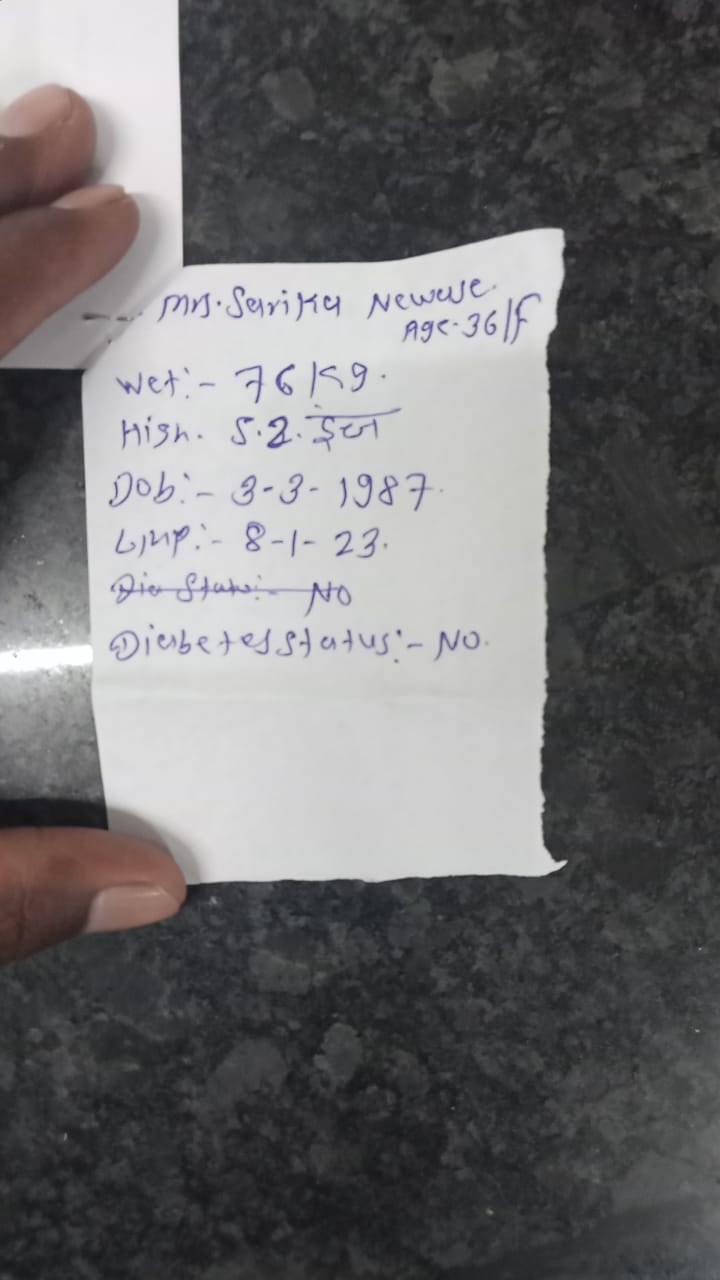 Mrs. Sarika Newase.
Age-36/F
Wet:- 76 Kg.
High. 5.2. इंच
Dob:- 3-3-1987.
LMP:- 8-1-23.
Dia Status:- NO
Diabetes Status:- NO.